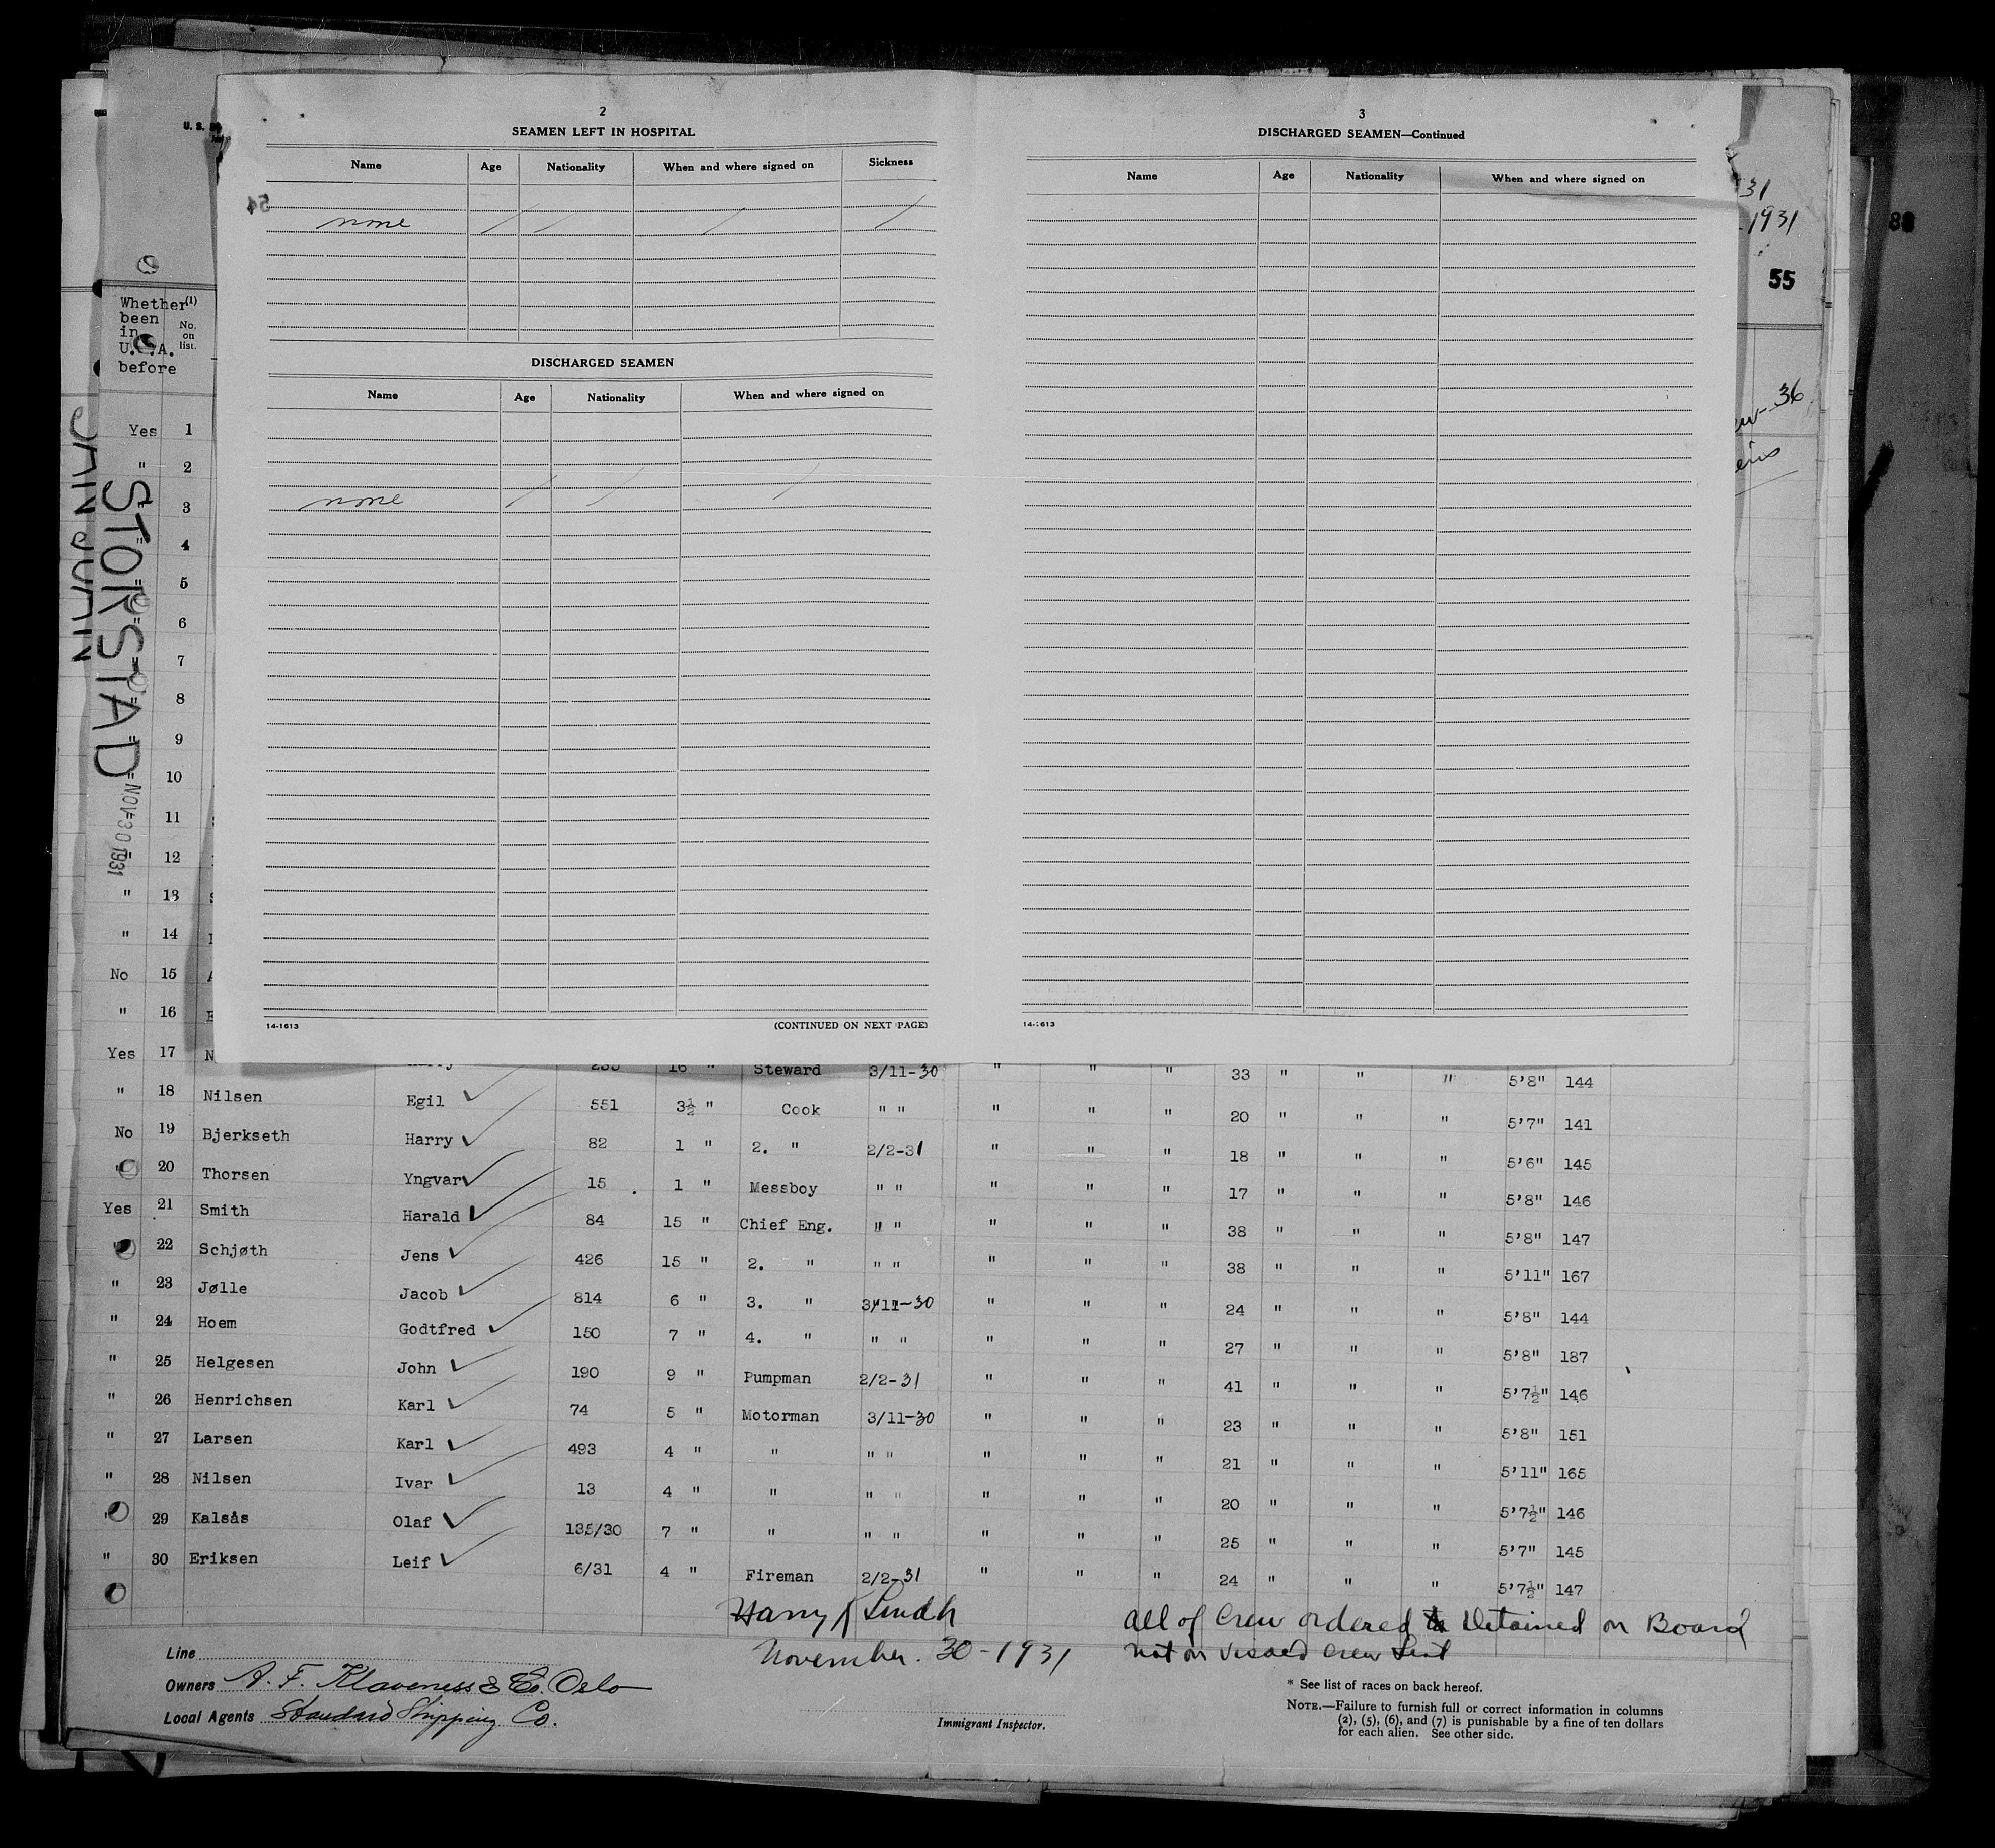 2
SEAMEN LEFT IN HOSPITAL
Name Age Nationality When and where signed on Sickness
54
none / / / /
DISCHARGED SEAMEN
Name Age Nationality When and where signed on
none / / /
14-1613 (CONTINUED ON NEXT PAGE)
3
DISCHARGED SEAMEN—Continued
Name Age Nationality When and where signed on
14-1613
U. S.
31
1931
55
88
36
Whether been in U.S.A. before
(1) No. on list.
STORSTAD
NOV 30 1931
Yes 1
" 2
" 3
" 4
" 5
" 6
" 7
" 8
" 9
" 10
" 11
" 12
" 13
" 14
No 15
" 16
Yes 17 N Steward 3/11-30 " " " 33 " " " 5'8" 144
" 18 Nilsen Egil ✓ 551 3½ " Cook " " " " " 20 " " " 5'7" 141
No 19 Bjerkseth Harry ✓ 82 1 " 2. " 2/2-31 " " " 18 " " " 5'6" 145
" 20 Thorsen Yngvar ✓ 15 1 " Messboy " " " " " 17 " " " 5'8" 146
Yes 21 Smith Harald ✓ 84 15 " Chief Eng. " " " " " 38 " " " 5'8" 147
" 22 Schjøth Jens ✓ 426 15 " 2. " " " " " " 38 " " " 5'11" 167
" 23 Jølle Jacob ✓ 814 6 " 3. " 3/11-30 " " " 24 " " " 5'8" 144
" 24 Hoem Godtfred ✓ 150 7 " 4. " " " " " " 27 " " " 5'8" 187
" 25 Helgesen John ✓ 190 9 " Pumpman 2/2-31 " " " 41 " " " 5'7½" 146
" 26 Henrichsen Karl ✓ 74 5 " Motorman 3/11-30 " " " 23 " " " 5'8" 151
" 27 Larsen Karl ✓ 493 4 " " " " " " " 21 " " " 5'11" 165
" 28 Nilsen Ivar ✓ 13 4 " " " " " " " 20 " " " 5'7½" 146
" 29 Kalsås Olaf ✓ 135/30 7 " " " " " " " 25 " " " 5'7" 145
" 30 Eriksen Leif ✓ 6/31 4 " Fireman 2/2-31 " " " 24 " " " 5'7½" 147
Harry Lindh
November. 30-1931
All of Crew ordered Detained on Board
not on visaed Crew List
Line
Owners A. F. Klaveness & Co. Oslo
Local Agents Standard Shipping Co.
Immigrant Inspector.
* See list of races on back hereof.
NOTE.—Failure to furnish full or correct information in columns
(2), (5), (6), and (7) is punishable by a fine of ten dollars
for each alien. See other side.